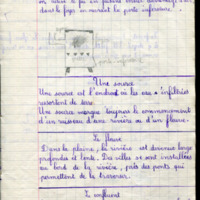 dans le foyer en ouvrant la porte inférieure.
Une source
Une source est l'endroit où les eaux infiltrées
ressortent de terre.
Une source marque toujours le commencement
d'un ruisseau d'une rivière ou d'un fleuve.
Le fleuve
Dans la plaine, la rivière est devenue large
profonde et lente. Des villes se sont installées
au bord de la rivière, près des ponts qui
permettent de la traverser.
Le confluent